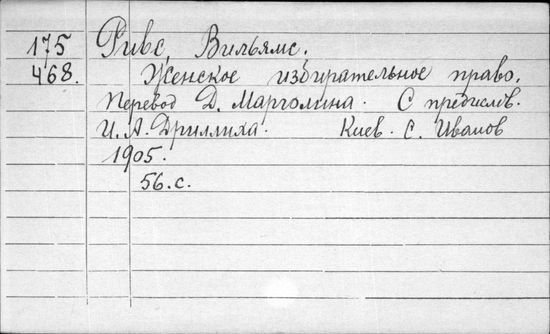 175 Ривс, Вильямс.
468. Женское избирательное право.
Перевод Д. Марголина. С предислов.
И. А. Дриллиха. Киев. С. Иванов
1905.
56. с.